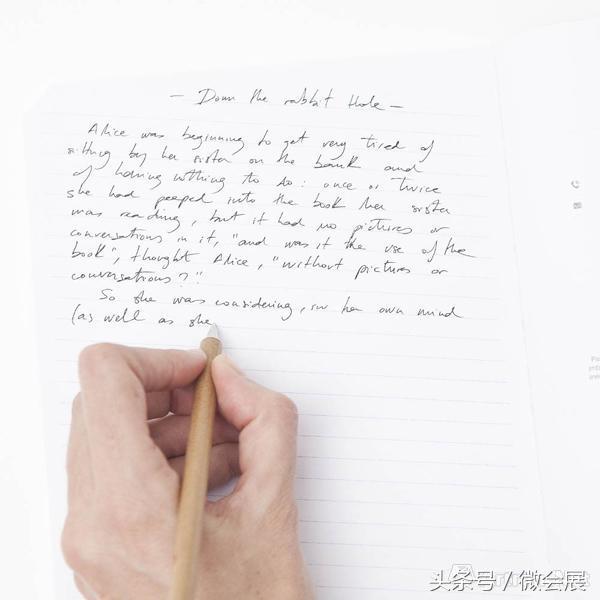 — Down the rabbit Hole —
Alice was beginning to get very tired of
sitting by her sister on the bank and
of having nothing to do: once or twice
she had peeped into the book her sister
was reading, but it had no pictures or
conversations in it, "and was it the use of the
book", thought Alice, "without pictures or
conversations?"
So she was considering, in her own mind
(as well as she
头条号 / 微会展